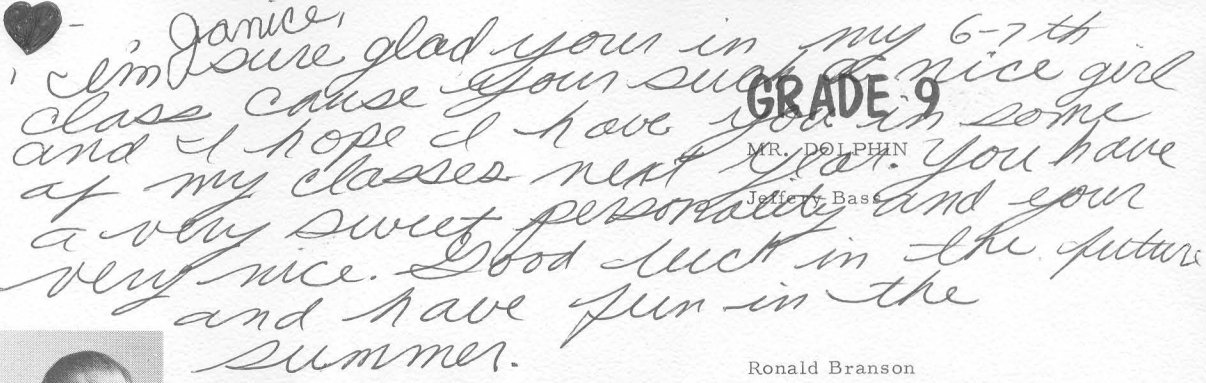 Janice,
i'm sure glad your in my 6-7th
class cause your such a nice girl
and I hope I have you in some
of my classes next year. You have
a very sweet personality and your
very nice. Good luck in the future
and have fun in the
summer.
GRADE 9
MR. DOLPHIN
Jeffery Bass
Ronald Branson